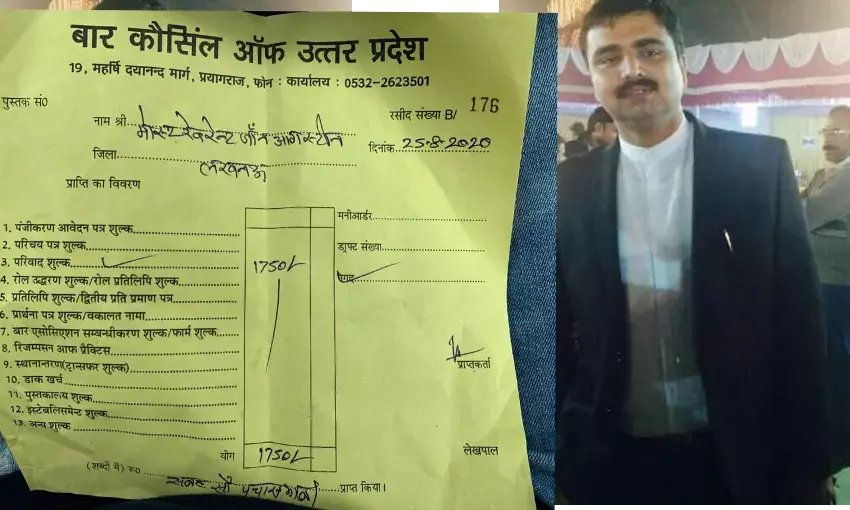 बार कौसिंल ऑफ उत्तर प्रदेश
19, महर्षि दयानन्द मार्ग, प्रयागराज, फोन : कार्यालय : 0532-2623501
पुस्तक सं0
रसीद संख्या B/ 176
नाम श्री मोस्ट रेवरेन्ट जॉन आगस्टीन
दिनांक 25-8-2020
जिला लखनऊ
प्राप्ति का विवरण
मनीआर्डर
1. पंजीकरण आवेदन पत्र शुल्क
2. परिचय पत्र शुल्क
ड्राफ्ट संख्या
3. परिवाद शुल्क 1750/-
नगद
4. रोल उद्धरण शुल्क/रोल प्रतिलिपि शुल्क
5. प्रतिलिपि शुल्क/द्वितीय प्रति प्रमाण पत्र
6. प्रार्थना पत्र शुल्क/वकालत नामा
7. बार एसोसिएशन सम्बन्धीकरण शुल्क/फार्म शुल्क
8. रिजम्पसन आफ प्रैक्टिस
प्राप्तकर्ता
9. स्थानान्तरण(ट्रान्सफर शुल्क)
10. डाक खर्च
11. पुस्तकालय शुल्क
12. इस्टेबलिसमेन्ट शुल्क
13. अन्य शुल्क
योग 1750/-
लेखपाल
(शब्दों में) रू0 सत्रह सौ पचास प्राप्त किया।